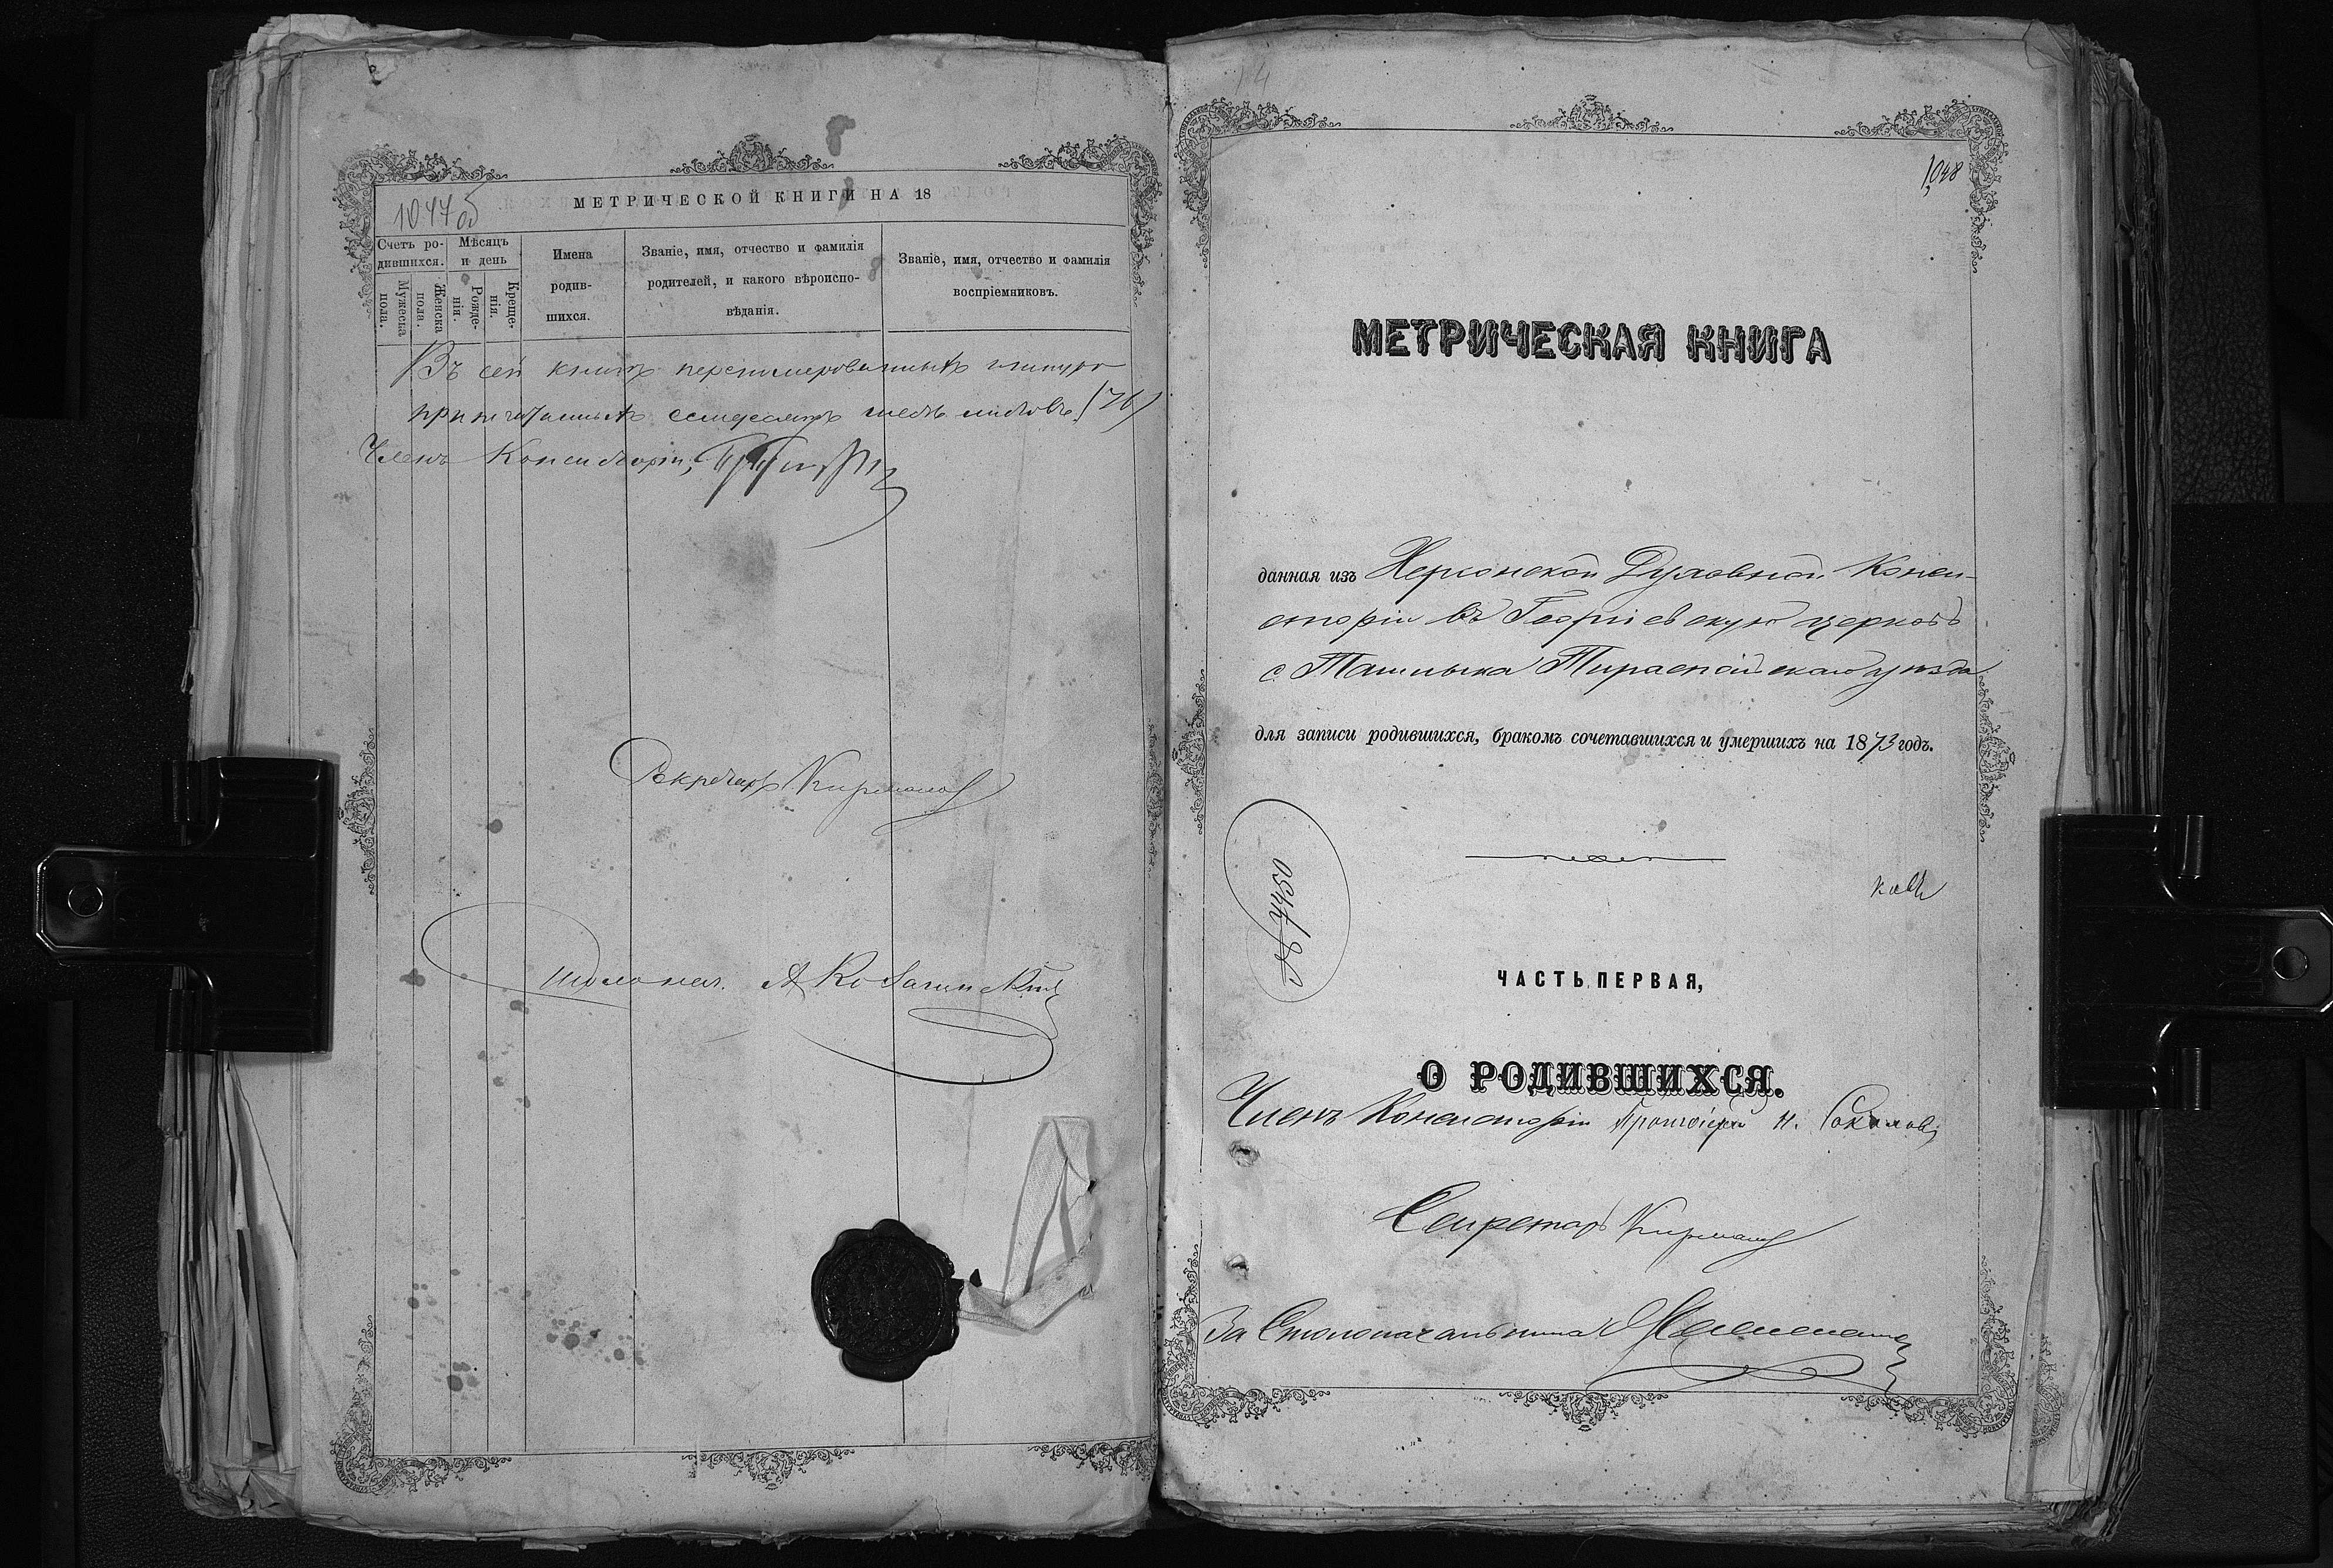 1047 об
МЕТРИЧЕСКОЙ КНИГИ НА 18
Счетъ ро-
дившихся.
Мужеска
пола.
Женска
пола.
Мѣсяцъ
и день
Рожде-
нія.
Креще-
нія.
Имена
родив-
шихся.
Званіе, имя, отчество и фамилія
родителей, и какого вѣроиспо-
вѣданія.
Званіе, имя, отчество и фамилія
воспріемниковъ.
Въ сей книгѣ перенумерованныхъ шнуро
припечатанныхъ семдесятъ шесть листовъ (76)
Членъ Консисторіи,
Секретарь
Столонач. А
14
1048
МЕТРИЧЕСКАЯ КНИГА
данная изъ Херсонской Духовной Конси-
сторіи въ Георгіевскую церковь
с. Ташлыка Тираспольскаго уѣзда
для записи родившихся, бракомъ сочетавшихся и умершихъ на 1873 годъ.
№ 7450
ЧАСТЬ ПЕРВАЯ,
О РОДИВШИХСЯ.
Членъ Консисторіи Протоіерей Н. Соколовъ
Секретарь
За Столоначальника